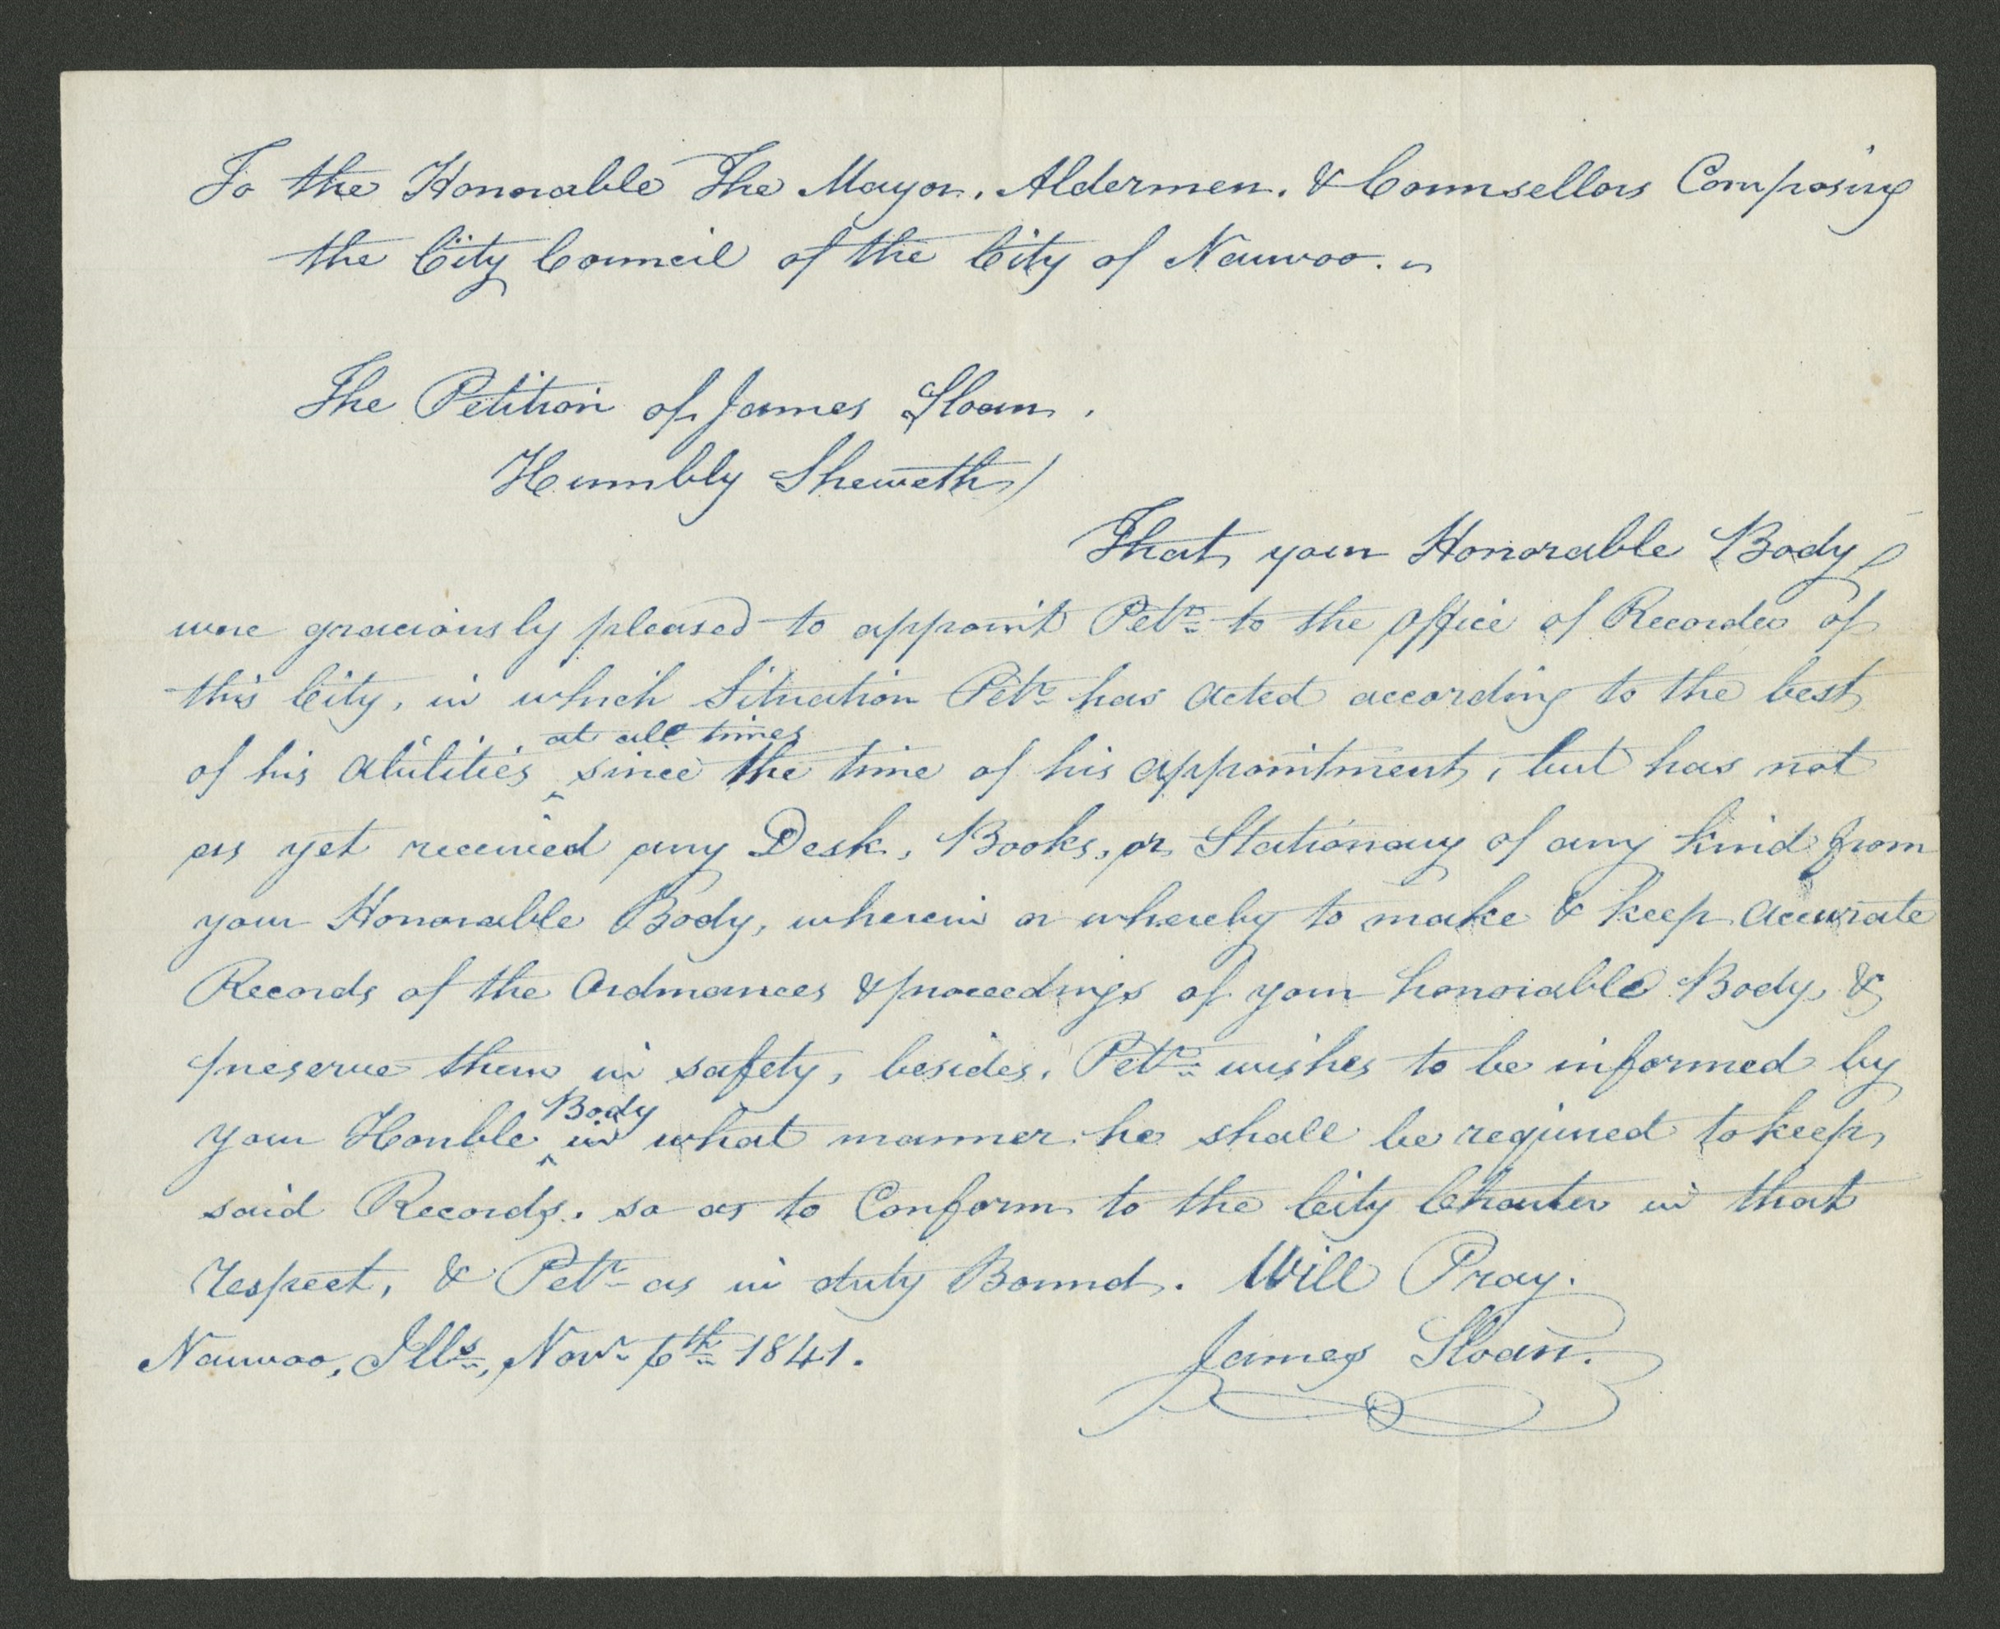 To the Honorable The Mayor, Aldermen, & Counsellors Composing
the City Council of the City of Nauvoo.
The Petition of James Sloan.
Humbly Sheweth/
That your Honorable Body
were graciously pleased to appoint Petr. to the office of Recorder of
this City, in which Situation Petr. has acted according to the best
at all times
of his abilities ‸ since the time of his appointment, but has not
as yet received any Desk, Books, or Stationary of any kind from
your Honorable Body, wherein or whereby to make & keep accurate
Records of the Ordinances & proceedings of your honorable Body, &
preserve them in safety, besides, Petr. wishes to be informed by
Body
your Honble ‸ in what manner he shall be required to keep
said Records, so as to Conform to the City Charter in that
respect, & Petr. as in duty Bound. Will Pray.
James Sloan.
Nauvoo, Ills., Novr. 6th. 1841.